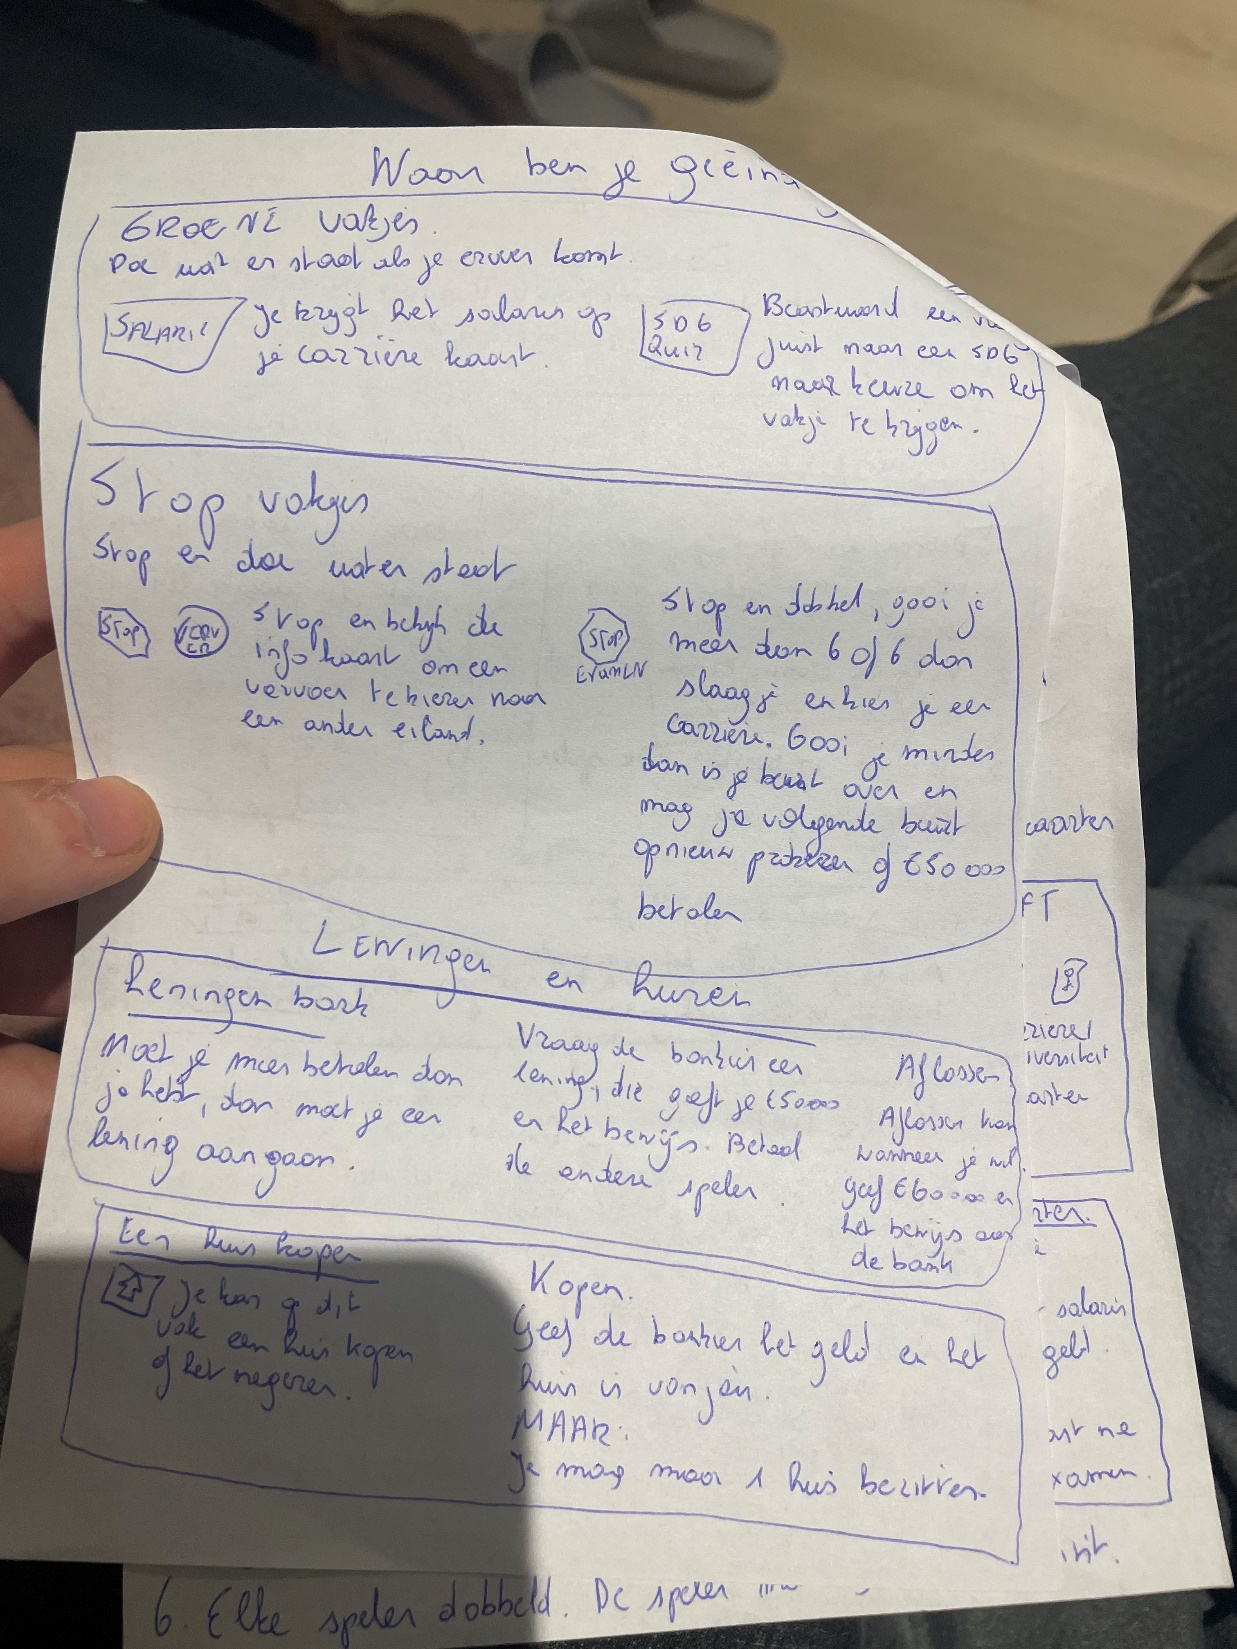 Waar ben je geëind
GROENE vakjes.
Doe wat er staat als je erover komt.
SALARIS
Je krijgt het salaris op
je carrière kaart.
SDG
Quiz
Beantwoord een
juist naar een SDG
naar keuze om het
vakje te krijgen.
Stop vakjes
Stop en doe wat er staat
STOP
VERV
ER
Stop en bekijk de
info kaart om een
vervoer te kiezen naar
een ander eiland.
STOP
EXAMEN
Stop en dobbel, gooi je
meer dan 6 of 6 dan
slaag je en kies je een
carrière. Gooi je minder
dan is je beurt over en
mag je volgende beurt
opnieuw proberen of €50 000
betalen
Leningen en huizen
Leningen bank
Moet je meer betalen dan
je hebt, dan moet je een
lening aangaan.
Vraag de bankier een
lening, die geeft je €50000
en het bewijs. Betaal
de andere speler.
Aflossen
Aflossen kan
wanneer je wil
geef €60000 en
het bewijs aan
de bank
Een huis kopen
Je kan op dit
vak een huis kopen
of het negeren.
Kopen.
Geef de bankier het geld en het
huis is van jou.
MAAR:
Je mag maar 1 huis bezitten.
kaarten
FT
iversiteit
arten
rten.
salaris
geld.
ne
xamen.
6. Elke speler dobbeld. De speler